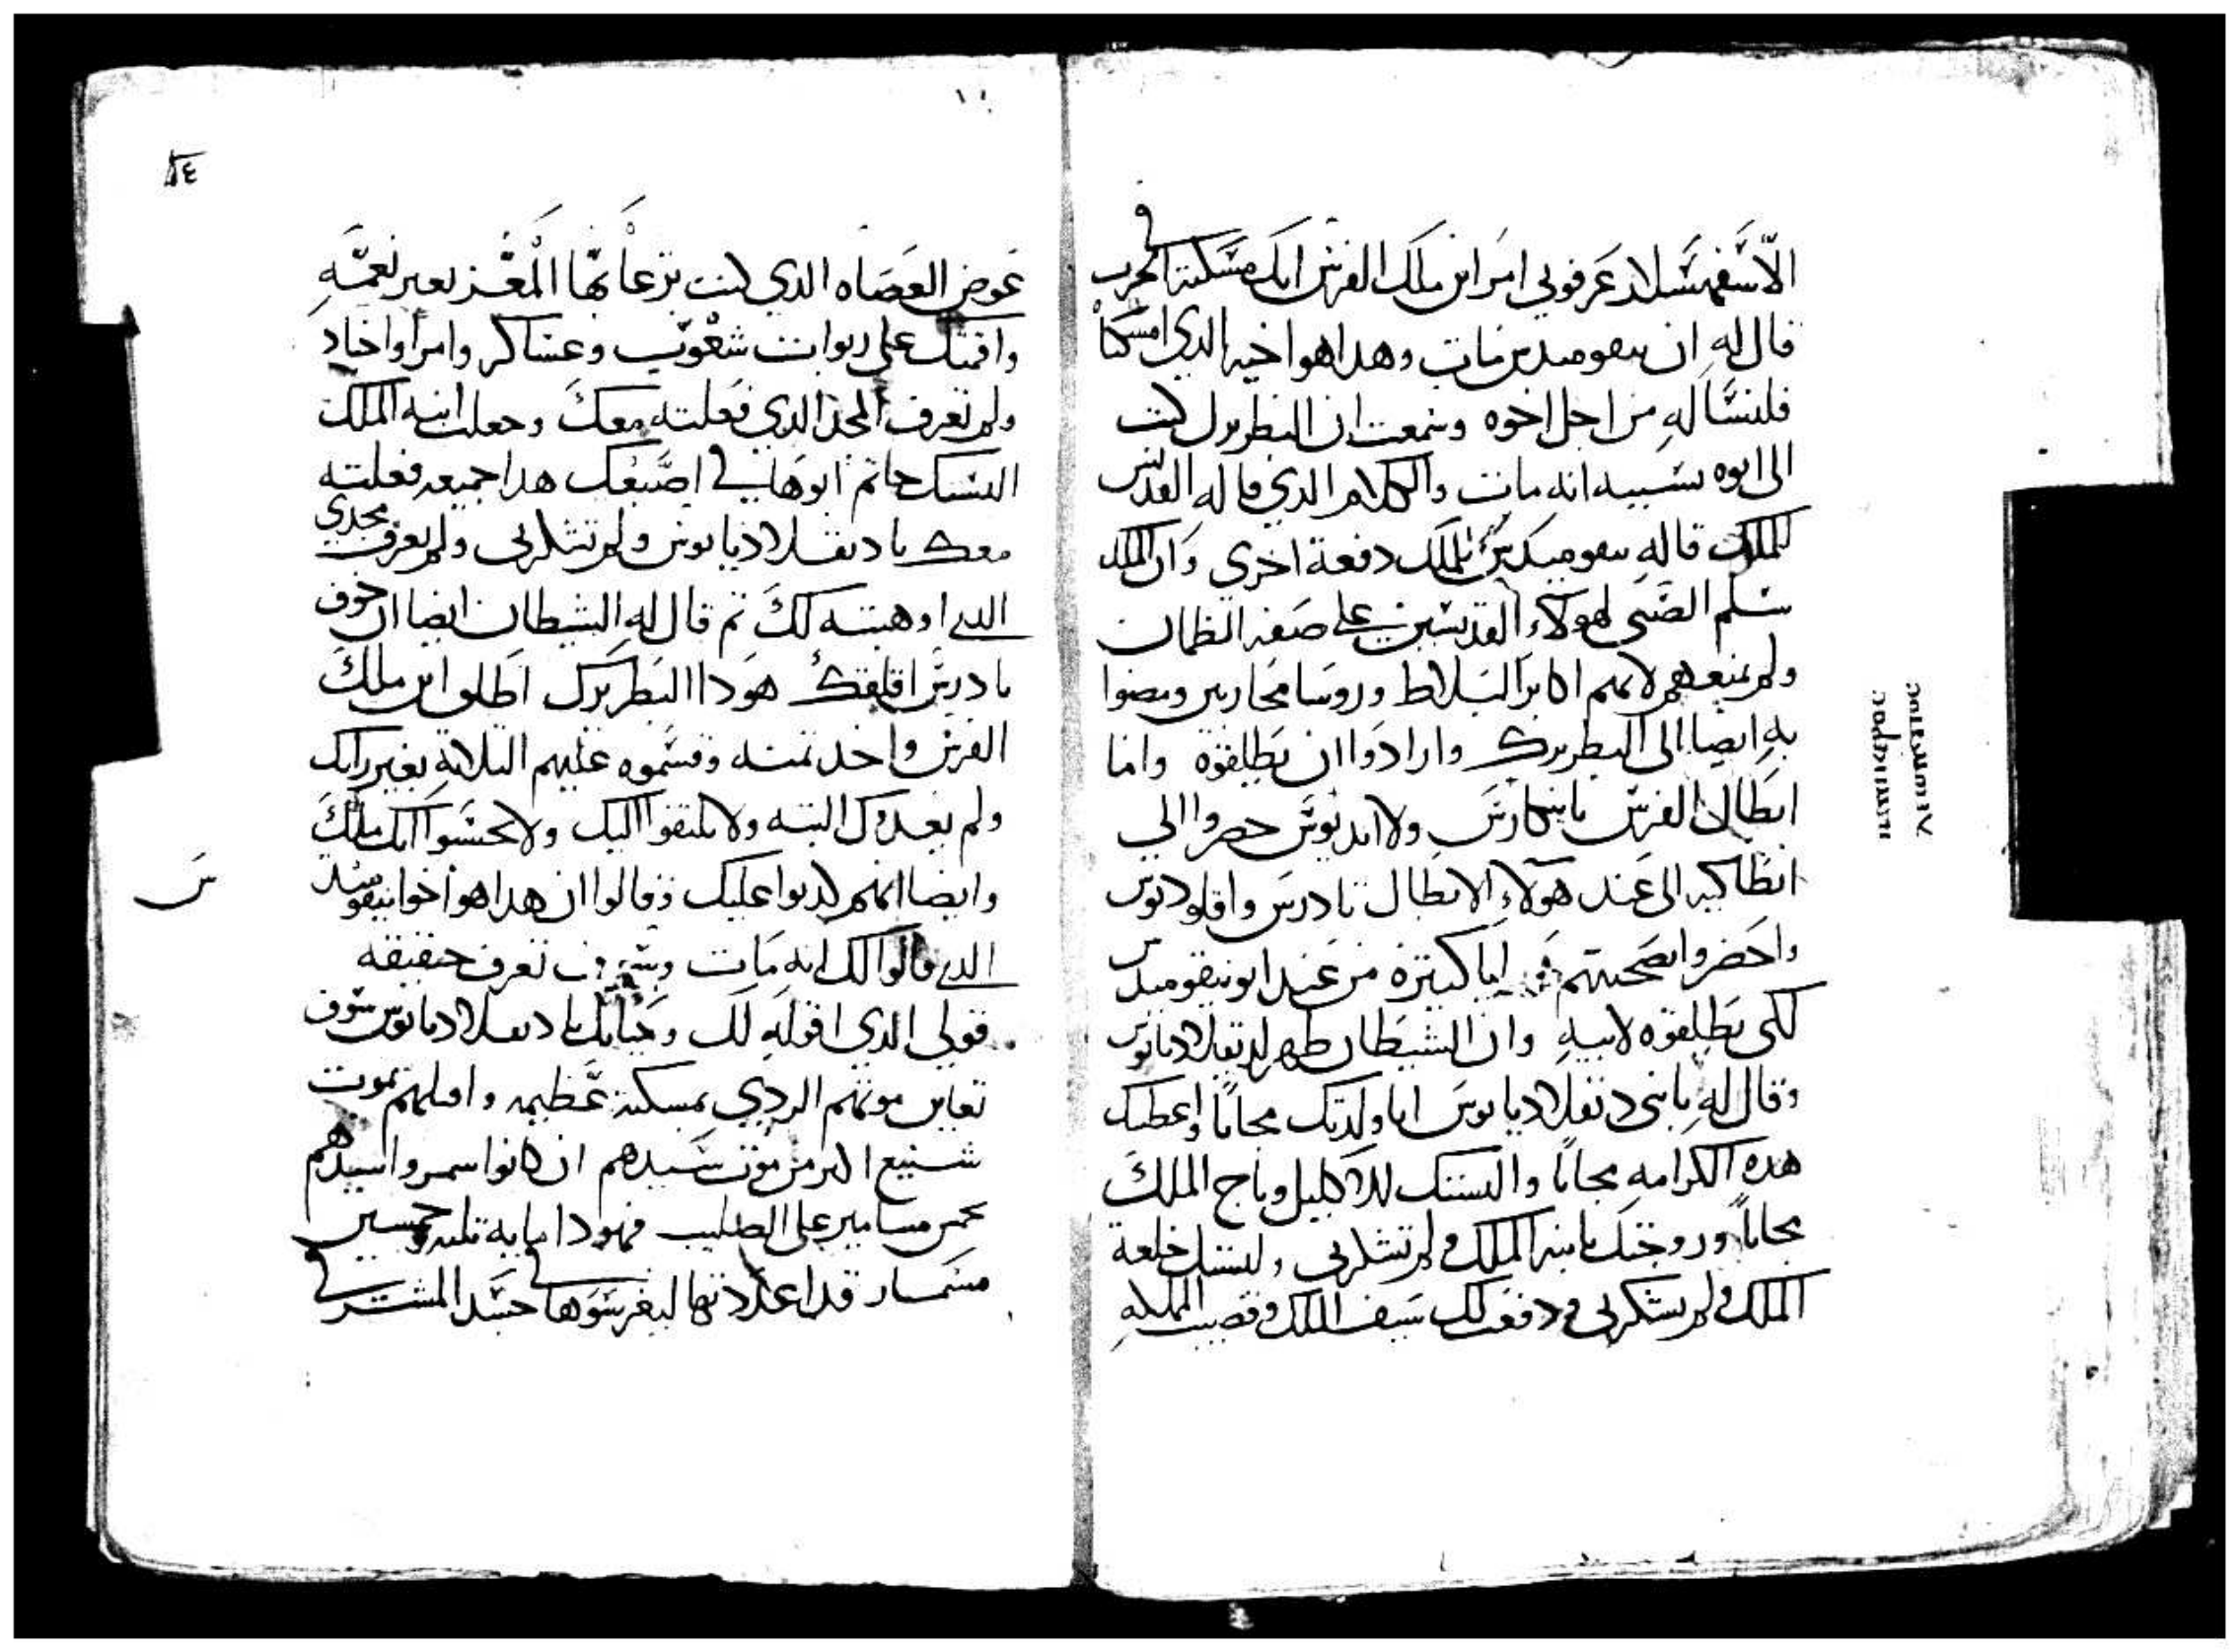 الاسفهسلار عرفوني امر ابن ملك الفرس انك مسكته في الحرب
قال له ان نيقوميدس مات وهدا هو اخيه الدي امسكنا
فلنسال له من اجل اخوه وسمعت ان البطريرك كتب
الى ابوه بسببه انه مات والكلام الدي قاله القديس
للملك قاله نيقوميدس للملك دفعة اخري وان الملك
سلم الصبى لهولاء القديسين على صفه الظمان
ولم يمنعهم لانهم اكابر البلاط وروسا محاربين ومضوا
به ايضا الى البطريرك وارادوا ان يطلقوه واما
ابطال الفرس ولا حضروا الي
انطاكيه الى عند هولاء الابطال تادرس واقلوديوس
واحضروا صحبتهم كثيره من عند ابو نيقوميدس
لكى يطلقوه لابيه وان الشيطان ظهر لدقلاديانوس
وقال له يابنى دقلاديانوس انا ولدتك مجانا واعطيتك
هده الكرامه مجانا والبستك الاكليل وتاج الملك
مجانا وزوجتك بابنة الملك ولم تشكرني ولبستك خلعة
الملك ولم تشكرني ودفعت لك سيف الملك وقضيب المملكه
١٠
عوض العصاه الدي كنت ترعا بها المعز بعير نعمه
واقمتك على ربوات شعوب وعساكر وامرا واجناد
ولم تعرف المجد الدي فعلته معك وجعلت ابنه الملك
البستك خاتم ابوها في اصبعك هدا جميعه فعلته
معك يا دقلاديانوس ولم تشكرني ولم تعرف مجدي
الدي اوهبته لك تم قال له الشيطان ايضا ان خوف
تادرس اقلقك هودا البطريرك اطلق ابن ملك
الفرس واخد تمنه وقسموه عليهم التلاته بغير رايك
ولم يعدوك البته ولا يلتفتوا اليك ولا يحسبوا انك ملك
وايضا انهم كدبوا عليك وقالوا ان هدا هو اخوا نيقوميدس
الدي قالوا لك انه مات وسوف تعرف حقيقه
قولي الدي اقوله لك وحياتك يا دقلاديانوس سوف
تعاين موتهم الردي بمسكنه عظيمه واقتلهم بموت
شنيع اكتر من موت سيدهم ان كانوا سمروا سيدهم
بخمس مسامير على الصليب فهودا مايه تلته وخمسين
مسمار قد اعددتها ليغرسوها في جسد المشترقي